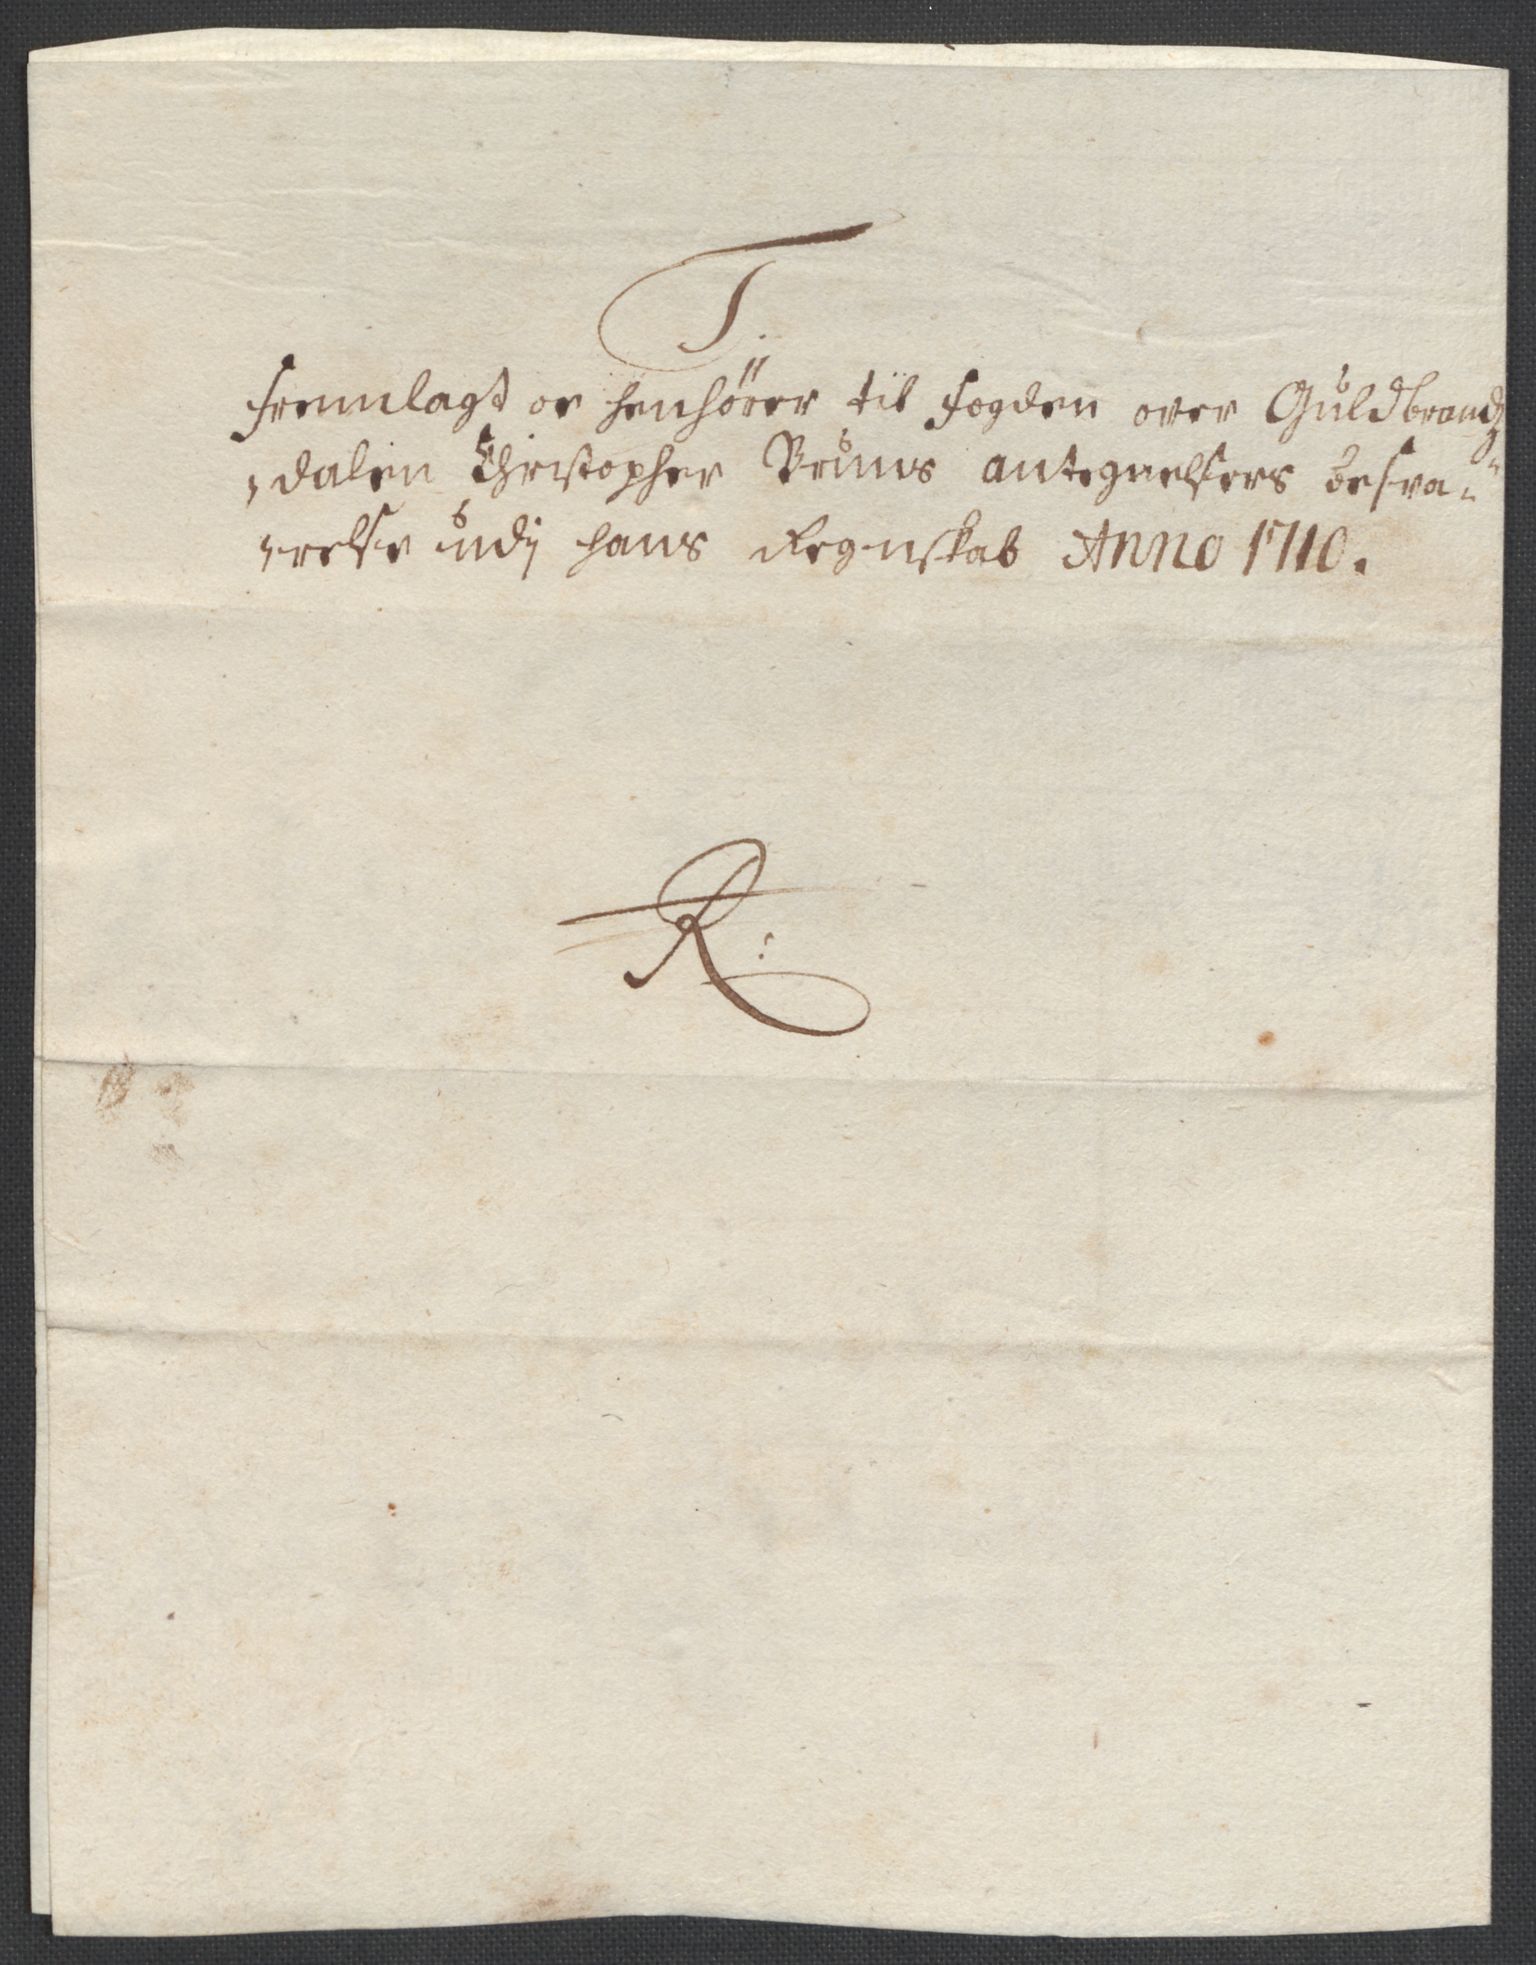 T.
Fremlagt oc henhörer til Fogden over Guldbrandz
dalen Christopher Bruuns antegnelsers besva-
relse udj hans Regnskab Anno 1710.
R: